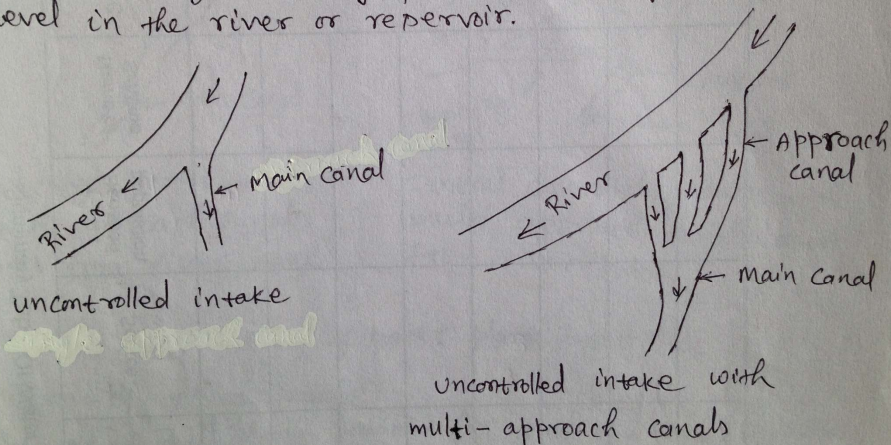 evel in the river or repervoir.
Main canal
River
uncontrolled intake
Approach
canal
River
Main Canal
Uncontrolled intake with
multi-approach canals